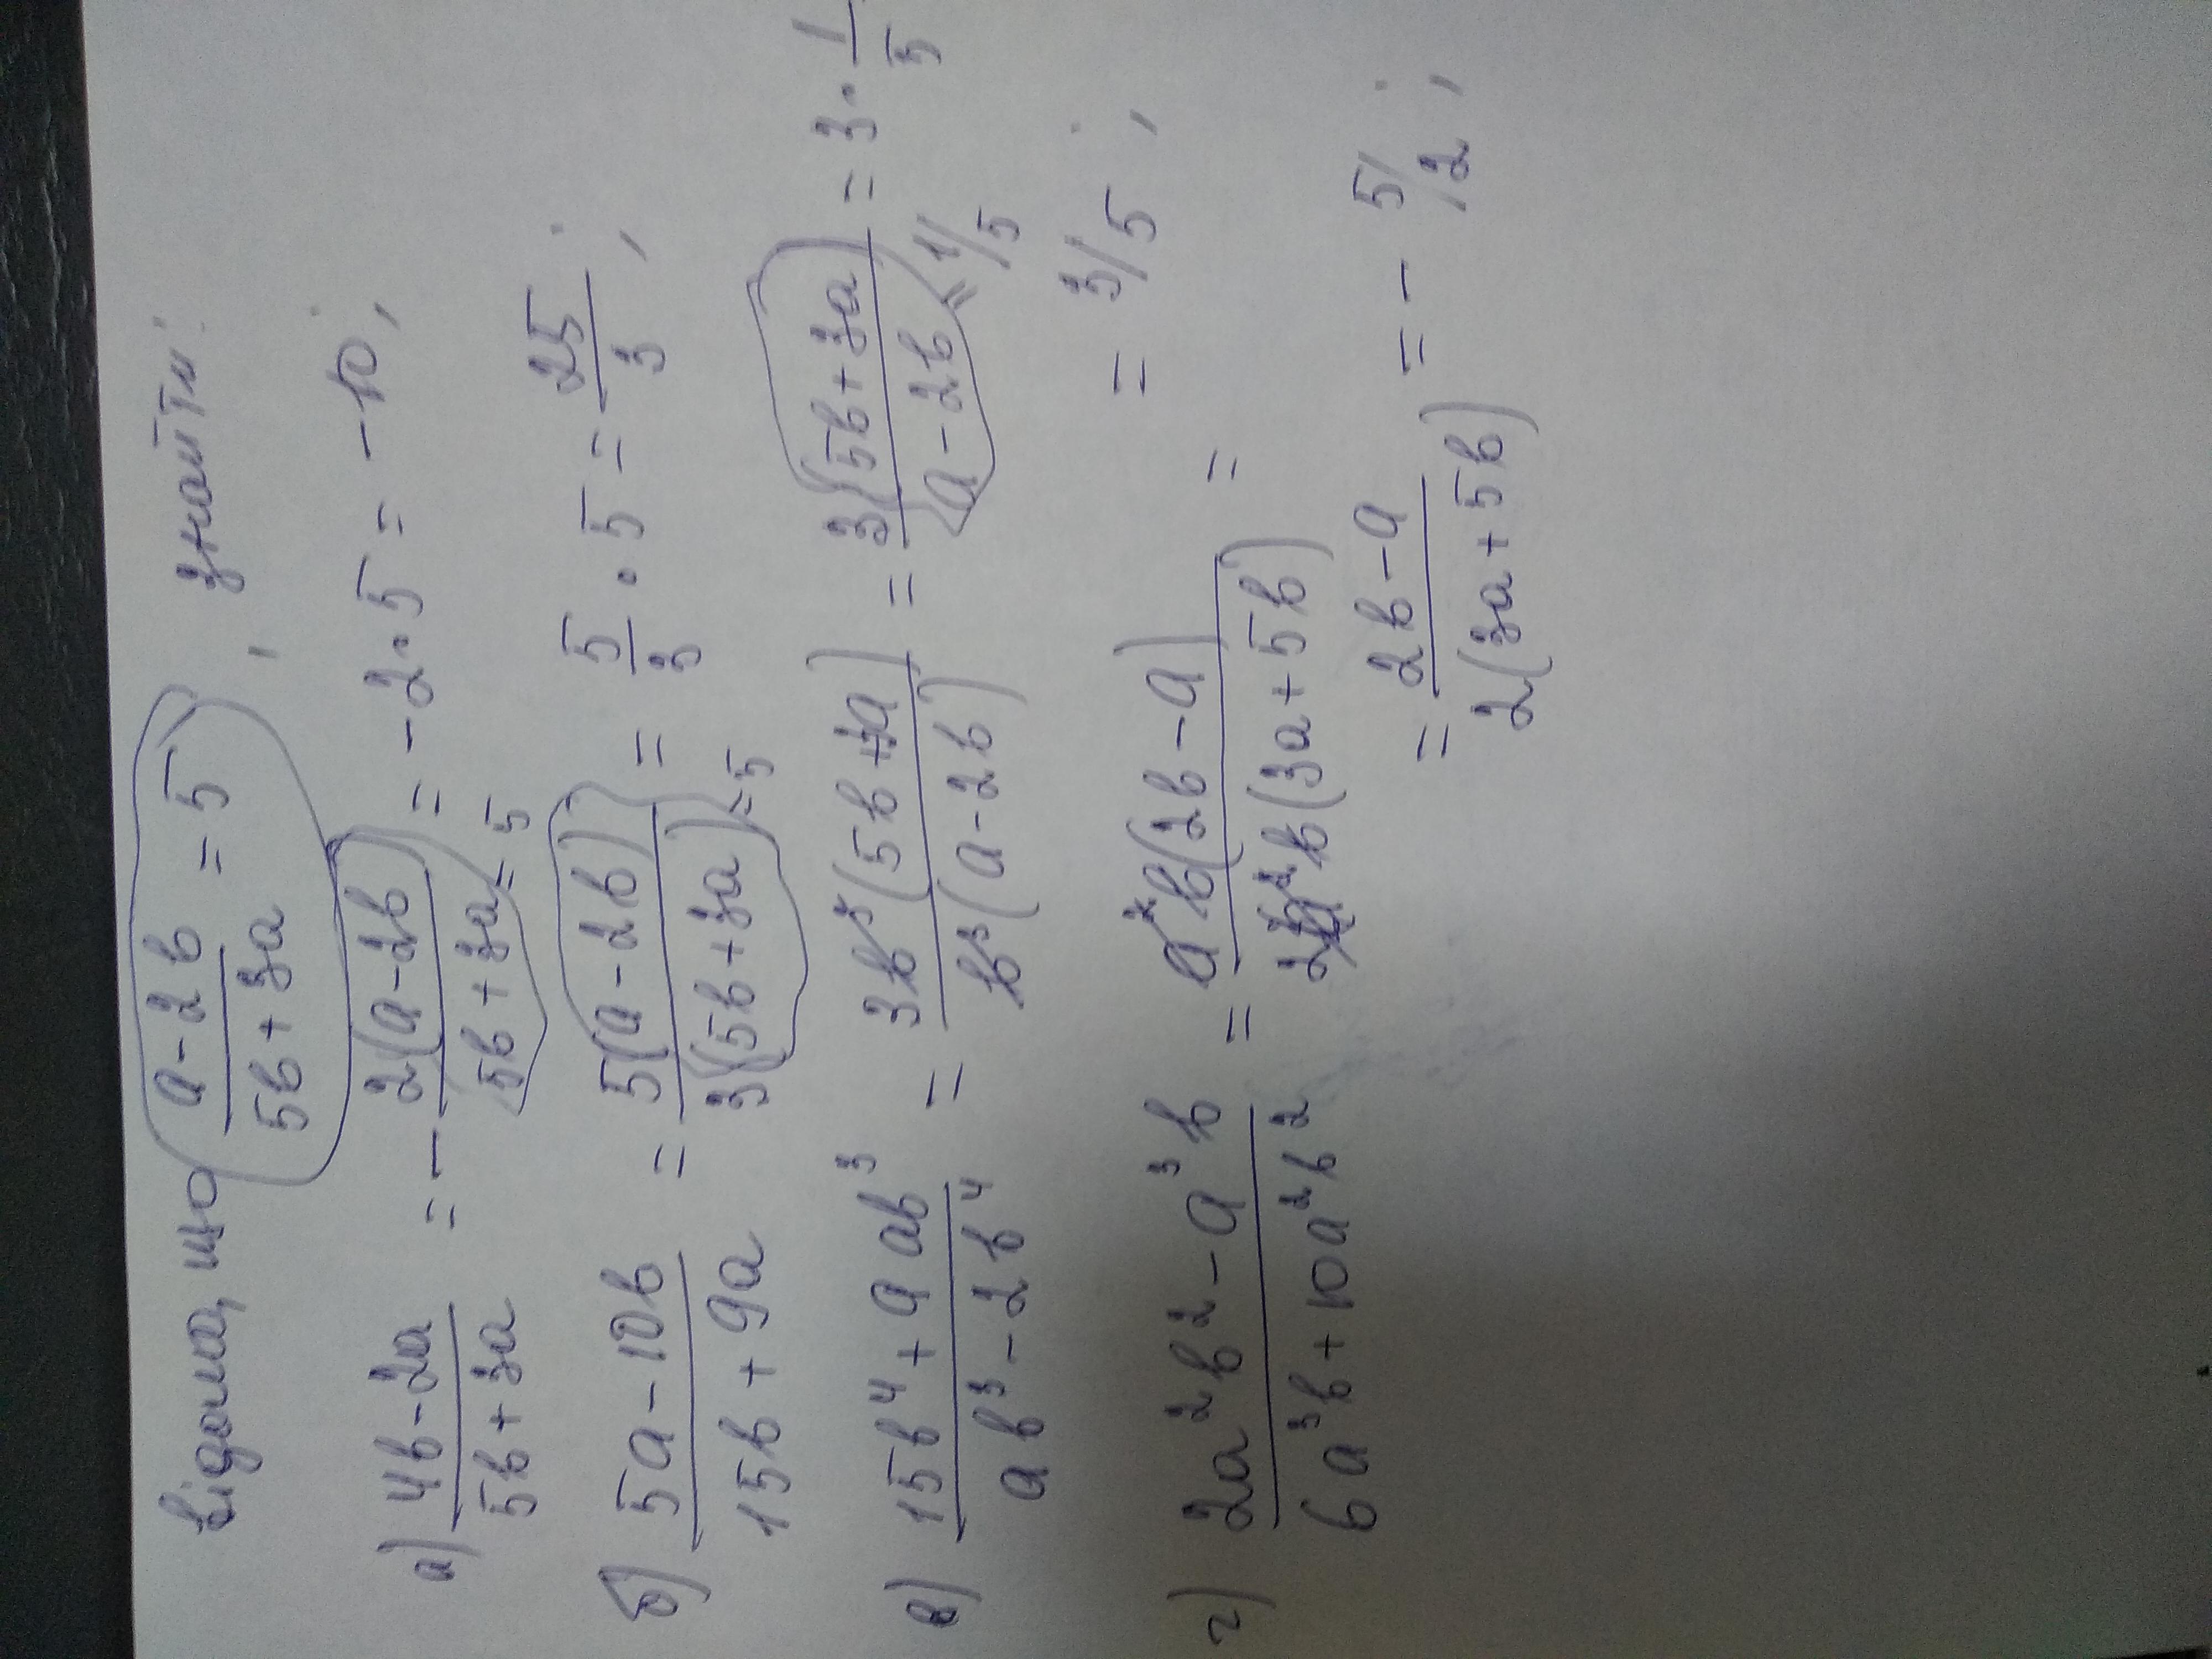 Відомо, що (a-2b)/(5b+3a) = 5, знайти:
а) (4b-2a)/(5b+3a) = - 2(a-2b)/(5b+3a) = -2·5 = -10;
= 5
б) (5a-10b)/(15b+9a) = 5(a-2b)/3(5b+3a) = 5/3 · 5 = 25/3;
= 5
в) (15b⁴+9ab³)/(ab³-2b⁴) = 3b³(5b+3a)/b³(a-2b) = 3(5b+3a)/(a-2b) = 3·1/5
= 1/5
= 3/5;
г) (2a²b²-a³b)/(6a³b+10a²b²) = a²b(2b-a)/2a²b(3a+5b) =
= (2b-a)/2(3a+5b) = - 5/2;